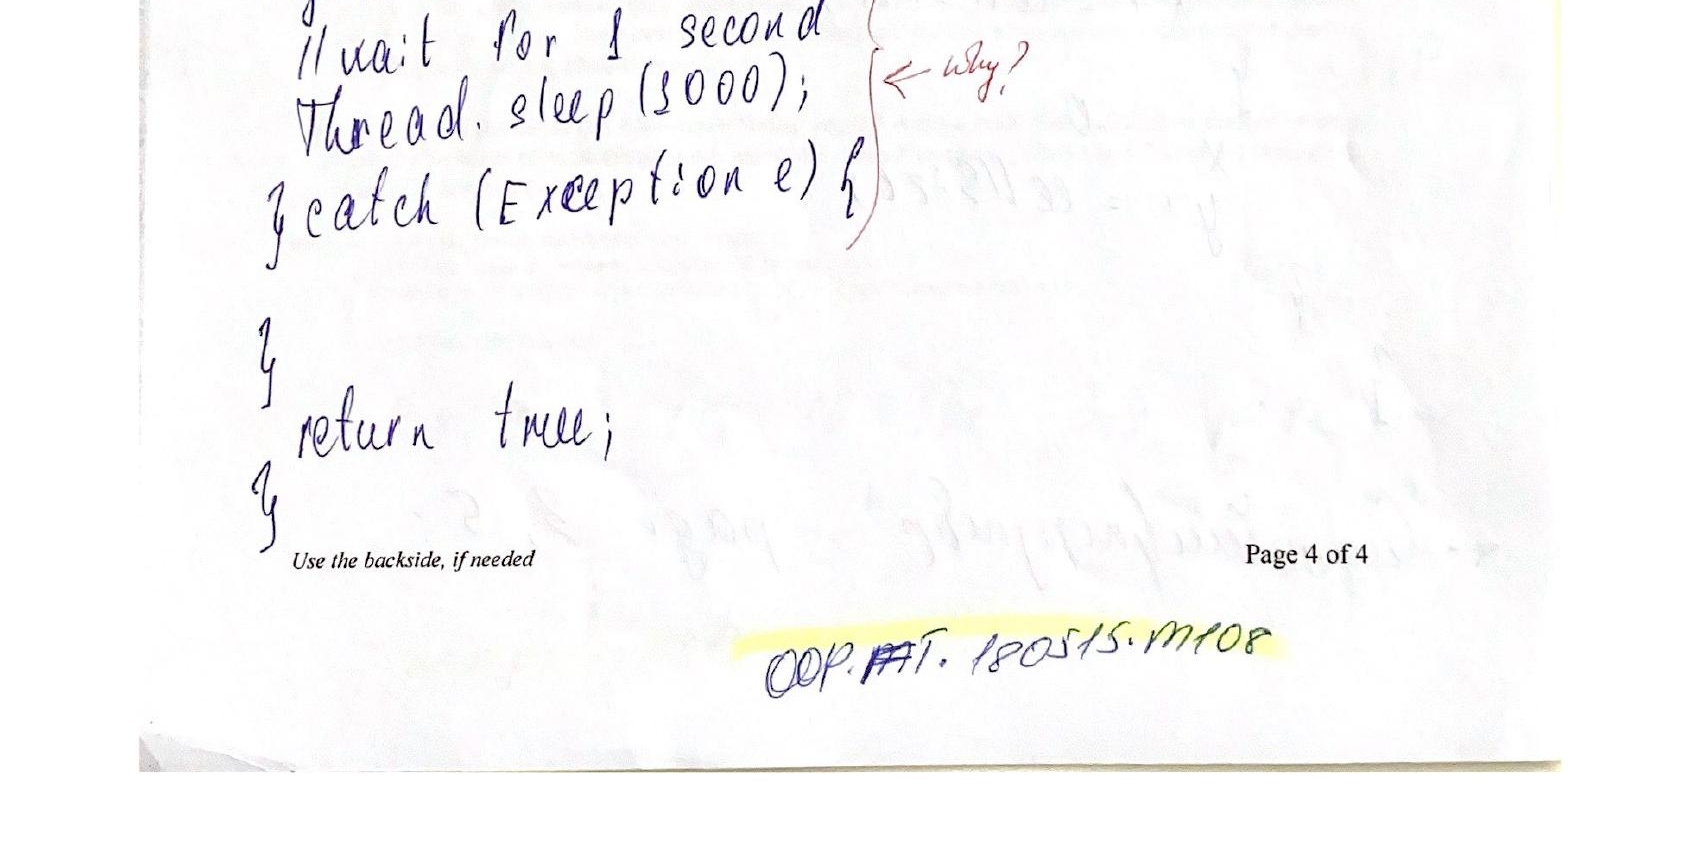 }
//wait for 1 second
Thread.sleep(1000); ← Why?
} catch (Exception e) {
}
return true;
}
Use the backside, if needed Page 4 of 4
OOP. T. 180515.M108